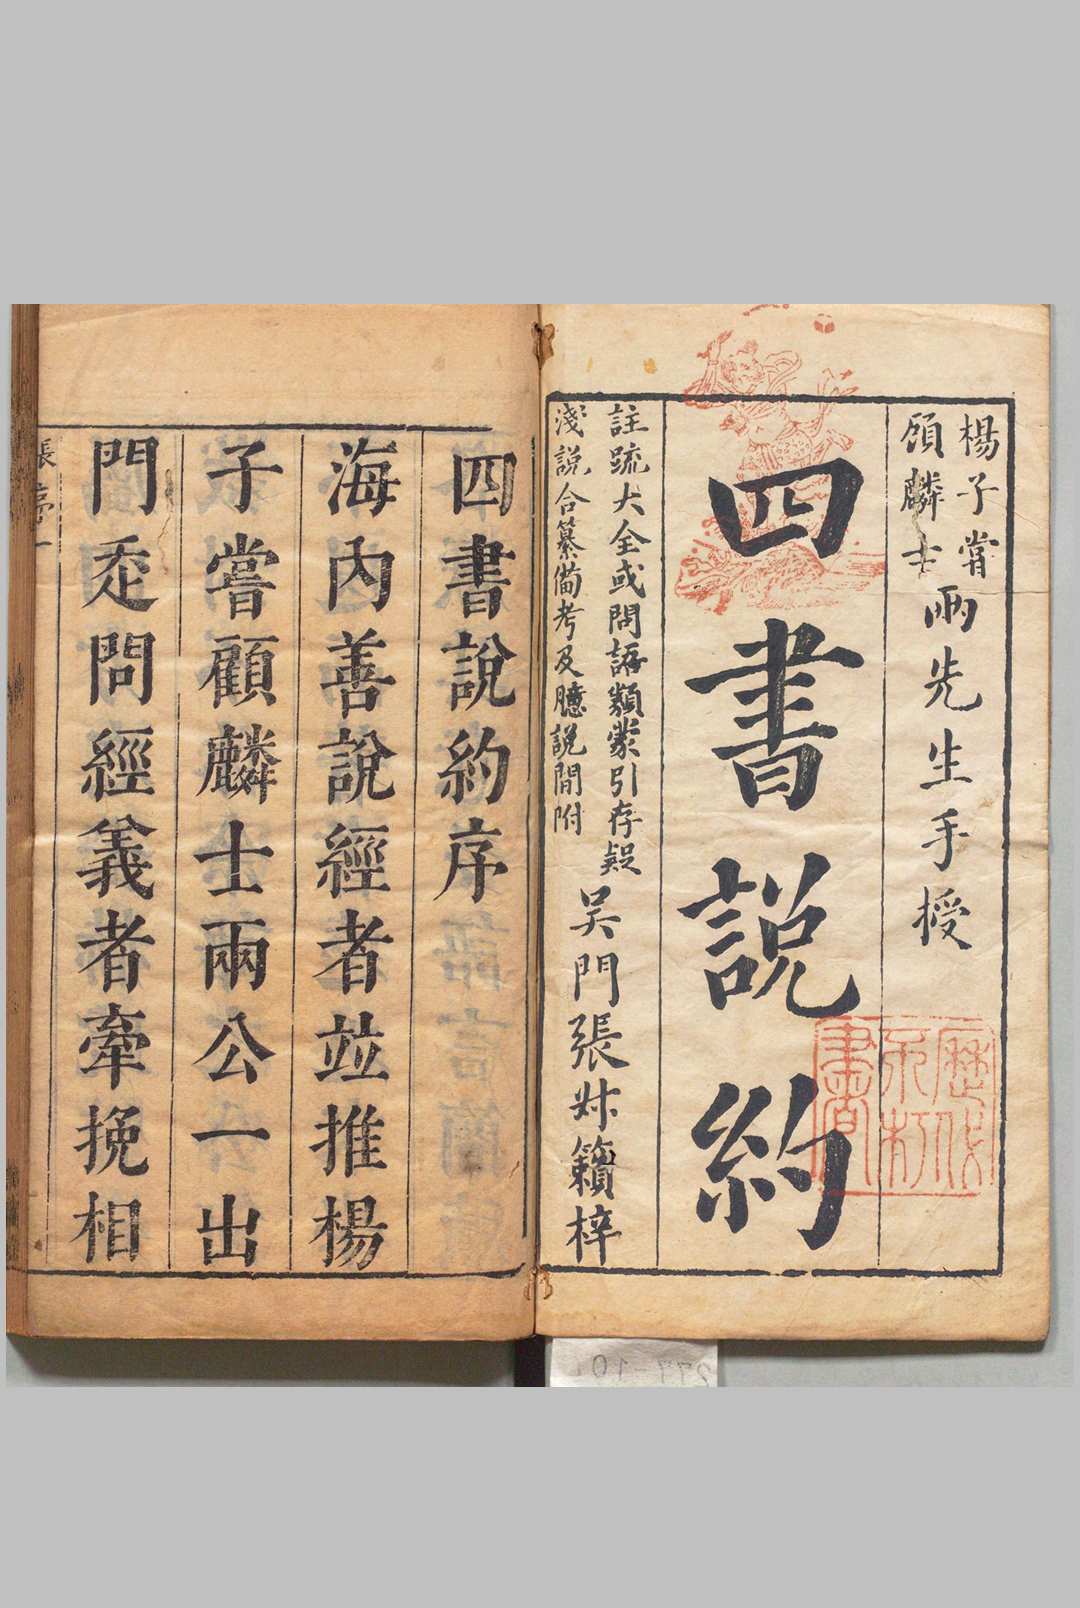 楊子甞
顧麟士
兩先生手授
四書說約
註疏大全或問語類蒙引存疑
淺說合纂備考及臆說間附
吳門張叔籟梓
四書說約序
海內善說經者竝推楊
子嘗顧麟士兩公一出
門問經義者牽挽相
張序 一